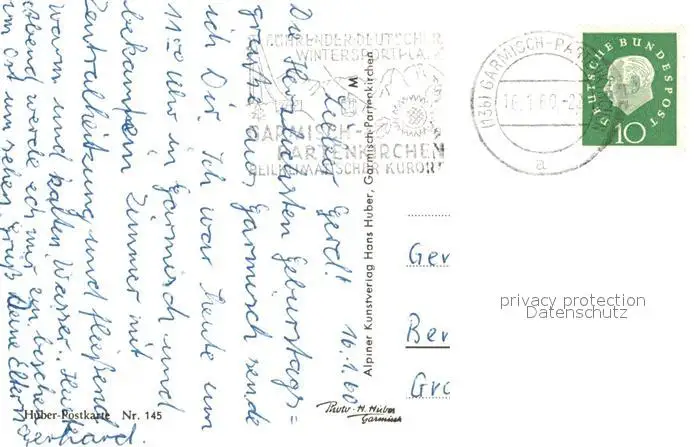 FÜHRENDER DEUTSCHER
WINTERSPORTPLATZ
GARMISCH-
PARTENKIRCHEN
HEILKLIMATISCHER KURORT
(13b) GARMISCH-PARTENKIRCHEN
16.1.60
a
DEUTSCHE BUNDESPOST
10
16.1.60
Lieber Gerd!
Herzlichsten Geburtstags=
grüße aus Garmisch sende
ich Dir. Ich war heute um
11 Uhr in Garmisch und
bekam ein Zimmer mit
Zentralheizung und fließend
warm und kalten Wasser. Heute
Abend werde ich mir ein bischen
um Ort um sehen. Gruß Deine Eltern
Gerhard.
M
Alpiner Kunstverlag Hans Huber, Garmisch-Partenkirchen
Ger
Ber
Gro
privacy protection
Datenschutz
Huber-Postkarte Nr. 145
Photo-H. Huber
Garmisch